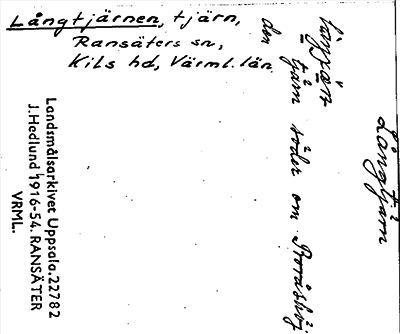 Långtjärnen, tjärn,
Ransäters sn,
Kils hd, Värml. län.
Långtjärn
tjärn söder om
den
Landsmålsarkivet Uppsala. 22782
J. Hedlund 1916-54. RANSÄTER
VRML.